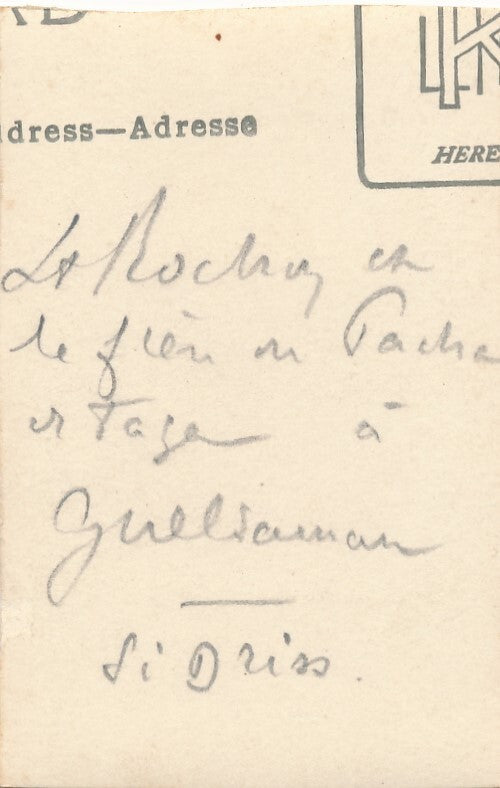 ddress—Adresse
HERE
Lt Rochay et
le frère du Pacha
de Taza à
Guelliaman
Si Driss.